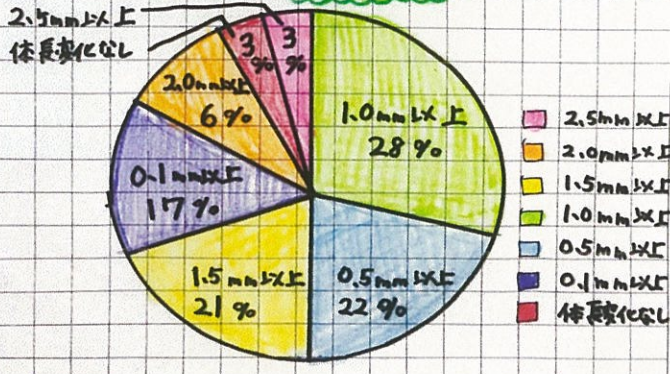 2.5mm以上
体長変化なし
3
%
3
%
1.0mm以上
28%
2.0mm以上
6%
0.1mm以上
17%
1.5mm以上
21%
0.5mm以上
22%
2.5mm以上
2.0mm以上
1.5mm以上
1.0mm以上
0.5mm以上
0.1mm以上
体長変化なし